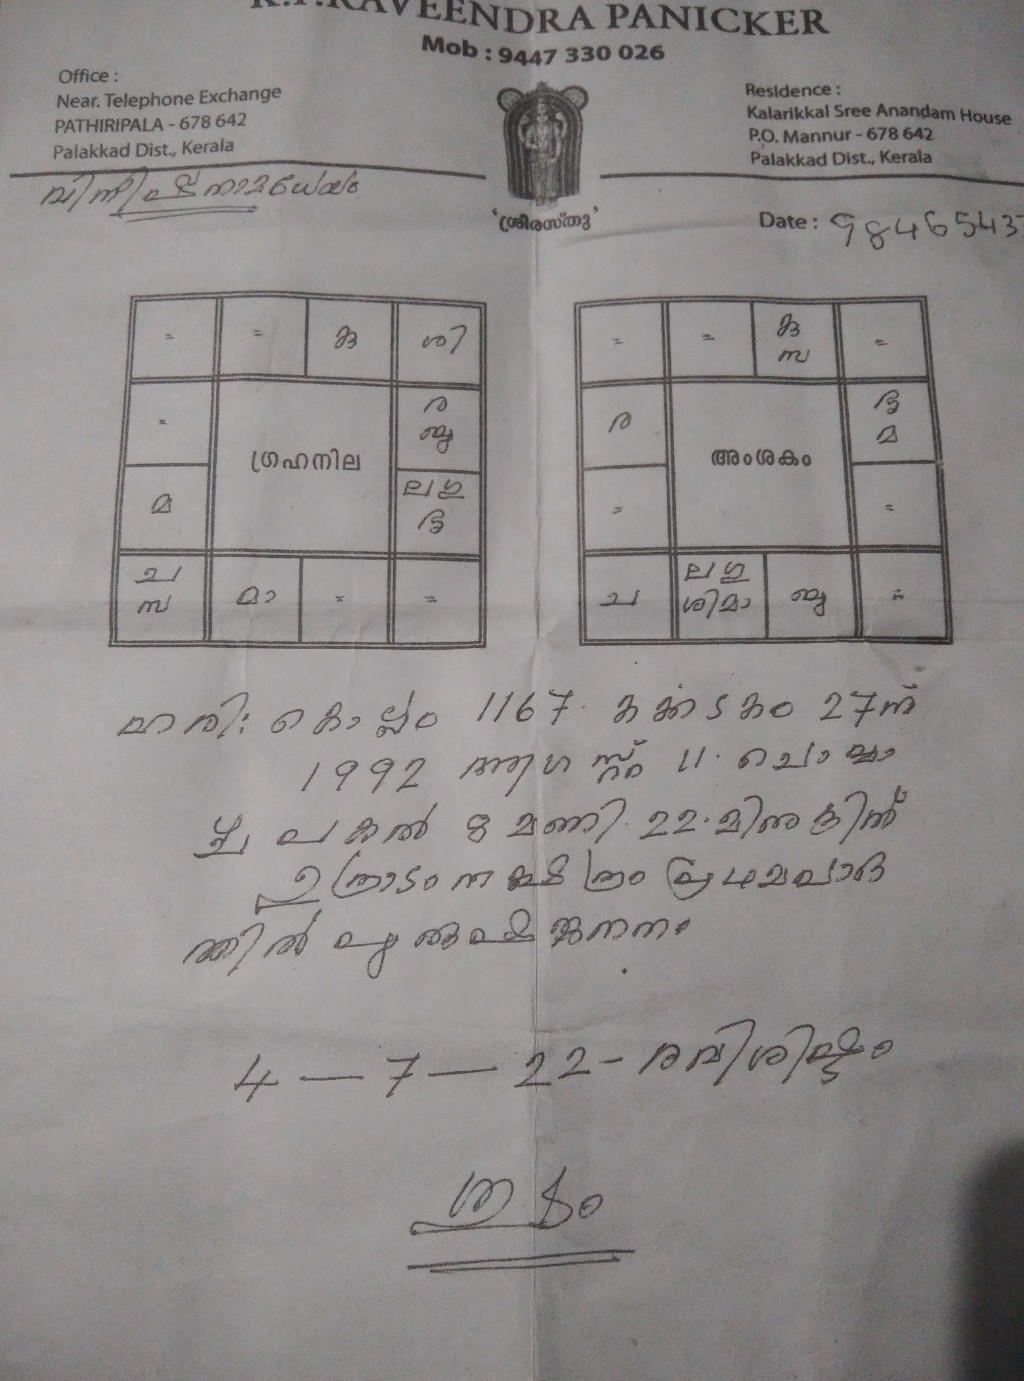 K.P.RAVEENDRA PANICKER
Mob : 9447 330 026
Office :
Near. Telephone Exchange
PATHIRIPALA - 678 642
Palakkad Dist., Kerala
Residence :
Kalarikkal Sree Anandam House
P.O. Mannur - 678 642
Palakkad Dist., Kerala
'ശ്രീരസ്തു'
Date : 98465437
= = കു ശി
=
ര
ബു
ഗ്രഹനില
മ
ല ഗു
ശു
ച
സ
മാ = =
= =
കു
സ
=
ര
അംശകം
മ
= =
ച
ല ഗു
ശിമാ
ബു =
കൊല്ലം 1167 കർക്കടകം 27ന്
1992 ആഗസ്റ്റ് 11. ചൊവ്വാ
പകൽ 8 മണി. 22. മിനുട്ടിൽ
ഉത്രാടം നക്ഷത്രം പ്രഥമപാദ
ത്തിൽ പുരുഷജനനം
4 — 7 — 22 -
ശുഭം